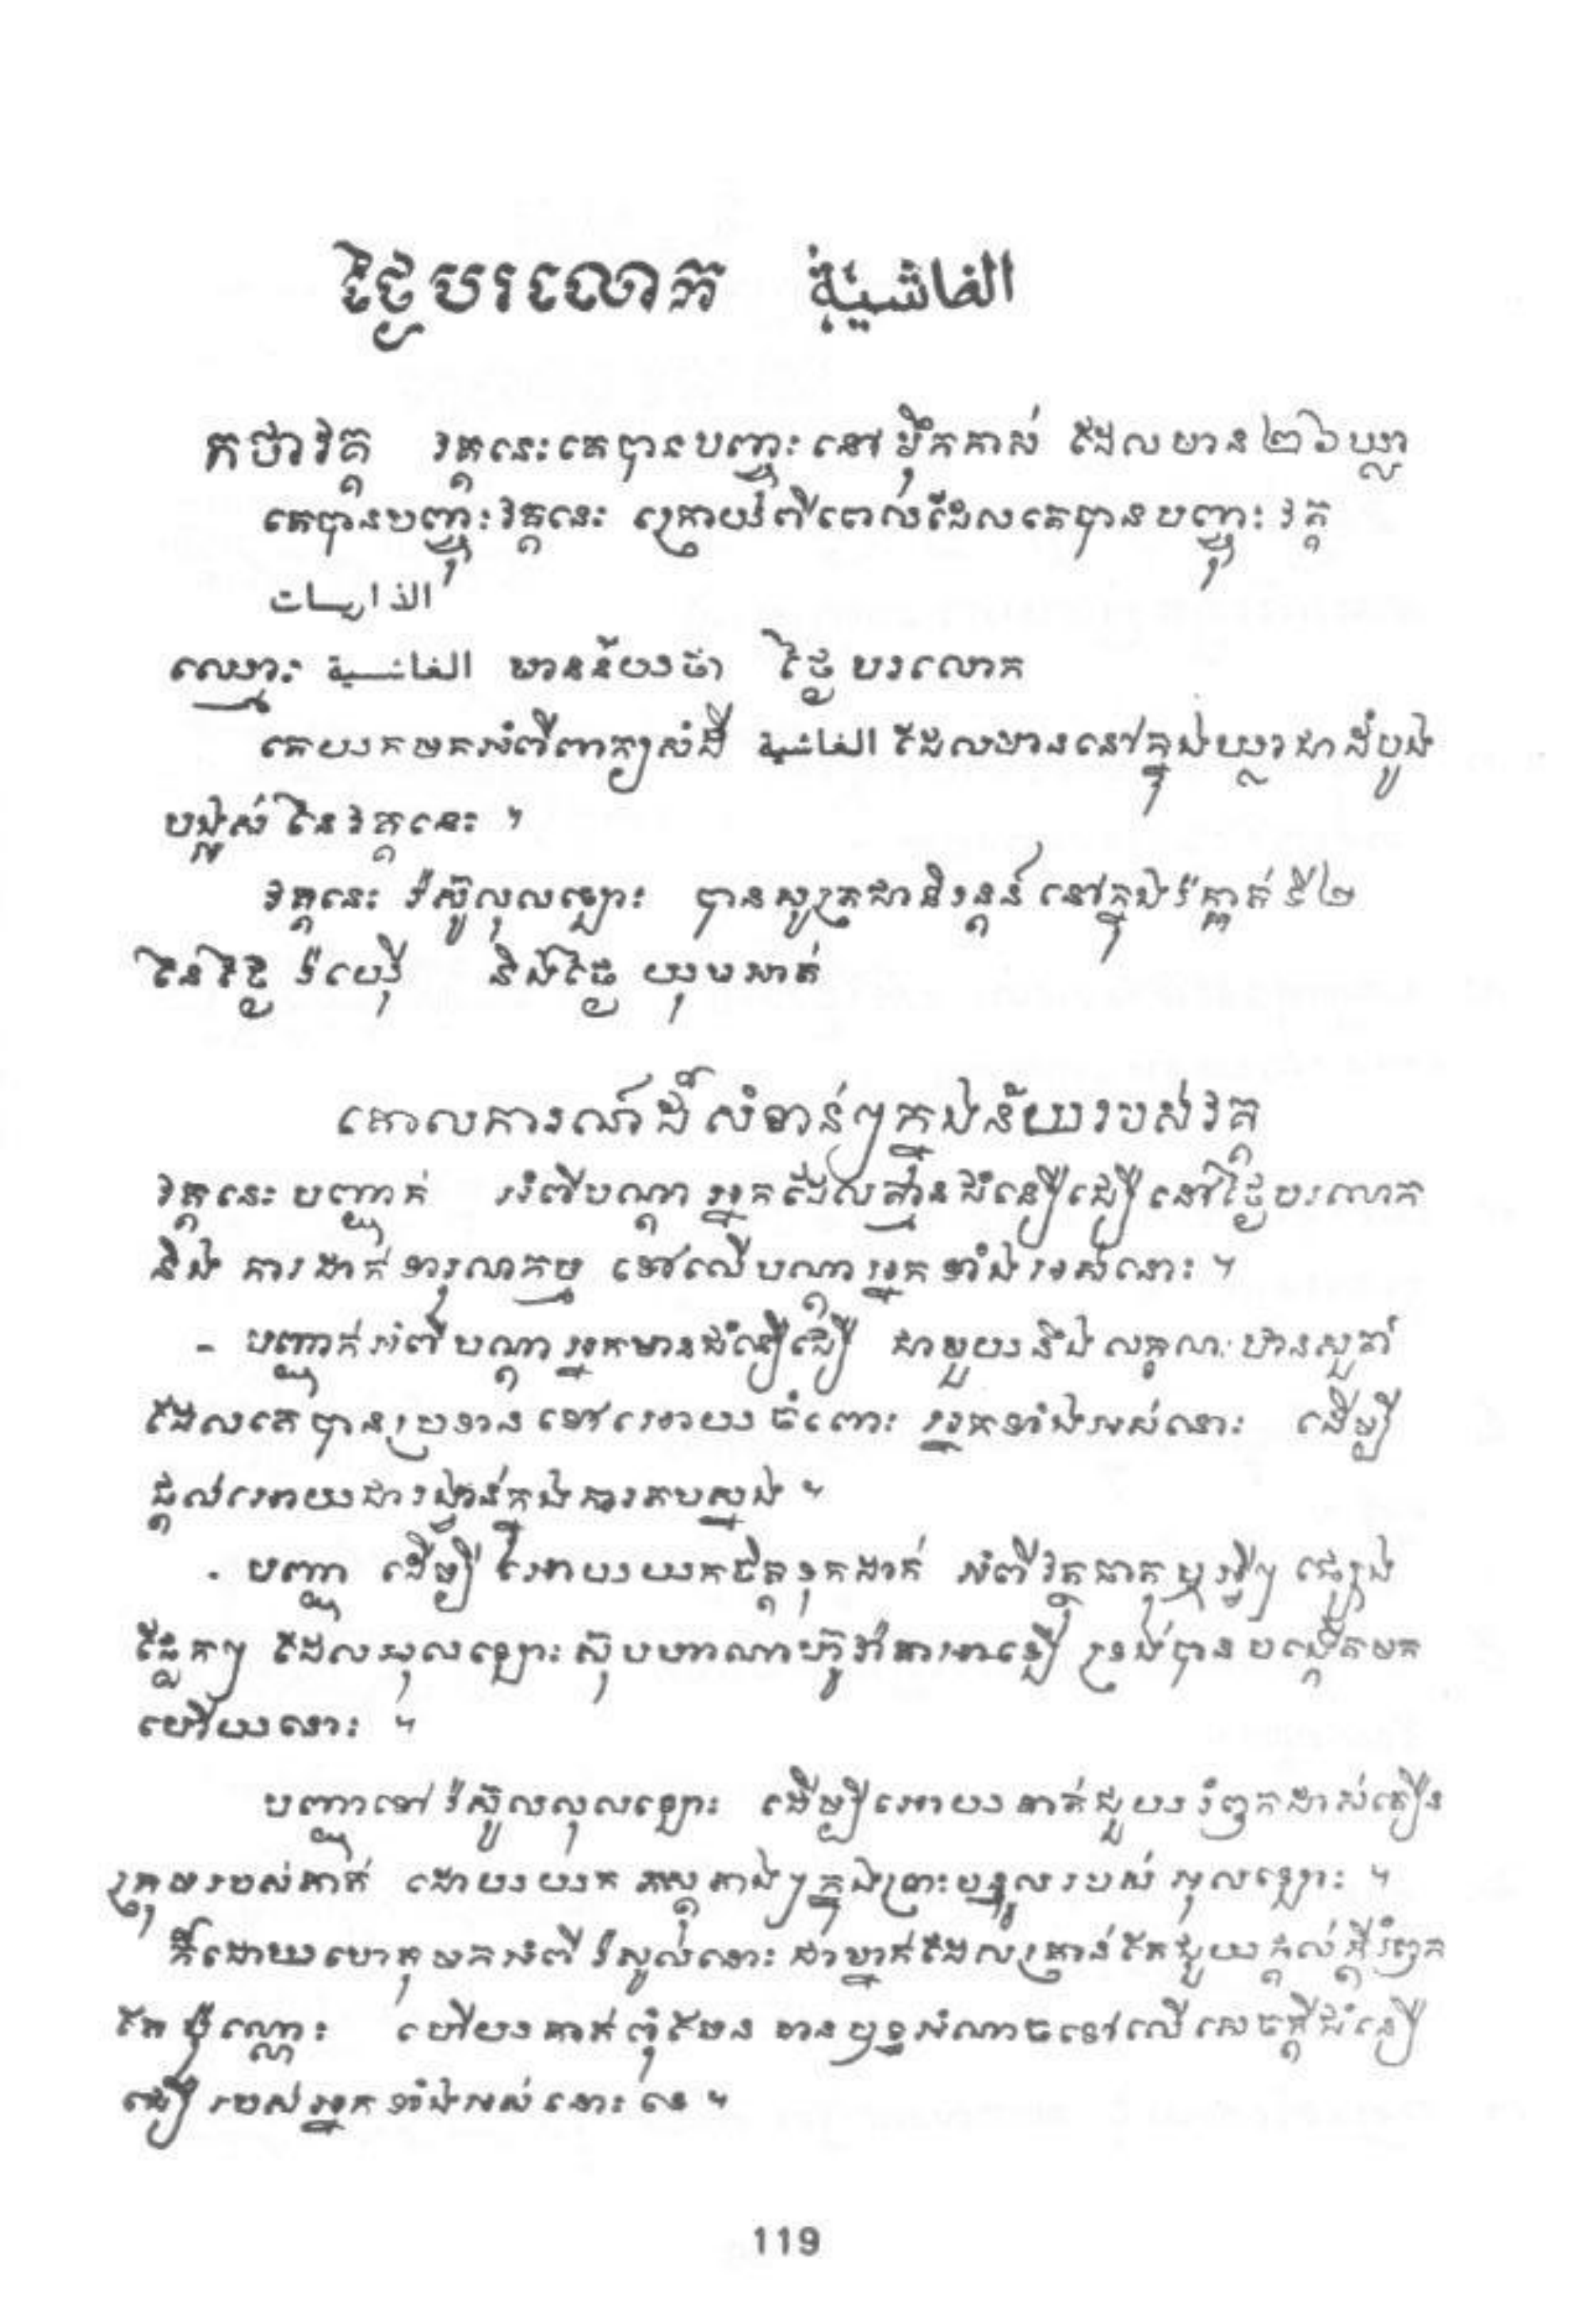 ថ្ងៃបរលោក الغاشية
កថាវគ្គ វគ្គនេះគេបានបញ្ចុះនៅម៉ឹកកាស់ ដែលមាន២៦ឃ្លា
គេបានបញ្ចុះវគ្គនេះ ក្រោយពីពេលដែលគេបានបញ្ចុះវគ្គ
الذاريات
ឈ្មោះ الغاشية មានន័យថា ថ្ងៃបរលោក
គេយកមកអំពីពាក្យសំដី الغاشية ដែលមាននៅក្នុងឃ្លាជាដំបូង
បង្អស់នៃវគ្គនេះ ។
វគ្គនេះ រ៉ស៊ូលុលឡោះ បានសូត្រជានិរន្តន៍នៅក្នុងរ៉ក្អាត់ទី២
នៃថ្ងៃ រ៉យេរ៉ី និងថ្ងៃ យុមអាត់
គោលការណ៍ដ៏សំខាន់ៗក្នុងន័យរបស់វគ្គ
វគ្គនេះបញ្ជាក់ អំពីបណ្តាអ្នកដែលគ្មានជំនឿជឿនៅថ្ងៃបរលោក
និង ការដាក់ទារុណកម្ម ទៅលើបណ្តាអ្នកទាំងអស់នោះ ។
- បញ្ជាក់អំពីបណ្តាអ្នកមានជំនឿជឿ ជាមួយនឹងលក្ខណៈឋានសួគ៌
ដែលគេបានប្រទានទៅអោយចំពោះ អ្នកទាំងអស់នោះ ដើម្បី
ផ្តល់អោយជារង្វាន់ក្នុងការតបស្នង ។
- បញ្ជា ដើម្បីអោយយកចិត្តទុកដាក់ អំពីវត្ថុធាតុឬអ្វីៗ ផ្សេង
ផ្នែកៗ ដែលអុលឡោះស៊ុបហាណាហ៊ូវ៉ាតាអាឡា ទ្រង់បានបង្កើតមក
ហើយនោះ ។
បញ្ជាទៅរ៉ស៊ូលលុលឡោះ ដើម្បីអោយគាត់ជួយរំឭកដាស់តឿន
ក្រុមរបស់គាត់ ដោយយក ភស្តុតាងៗក្នុងព្រះបន្ទូលរបស់ អុលឡោះ ។
ក៏ដោយហេតុមកអំពី រ៉ស៊ូលនោះ ជាម្នាក់ដែលគ្រាន់តែជួយផ្តល់ក្តីរំឭក
តែប៉ុណ្ណោះ ហើយគាត់ពុំមែន មានឫទ្ធអំណាចទៅលើសេចក្តីជំនឿ
ជឿ របស់អ្នកទាំងអស់នោះទេ ។
119